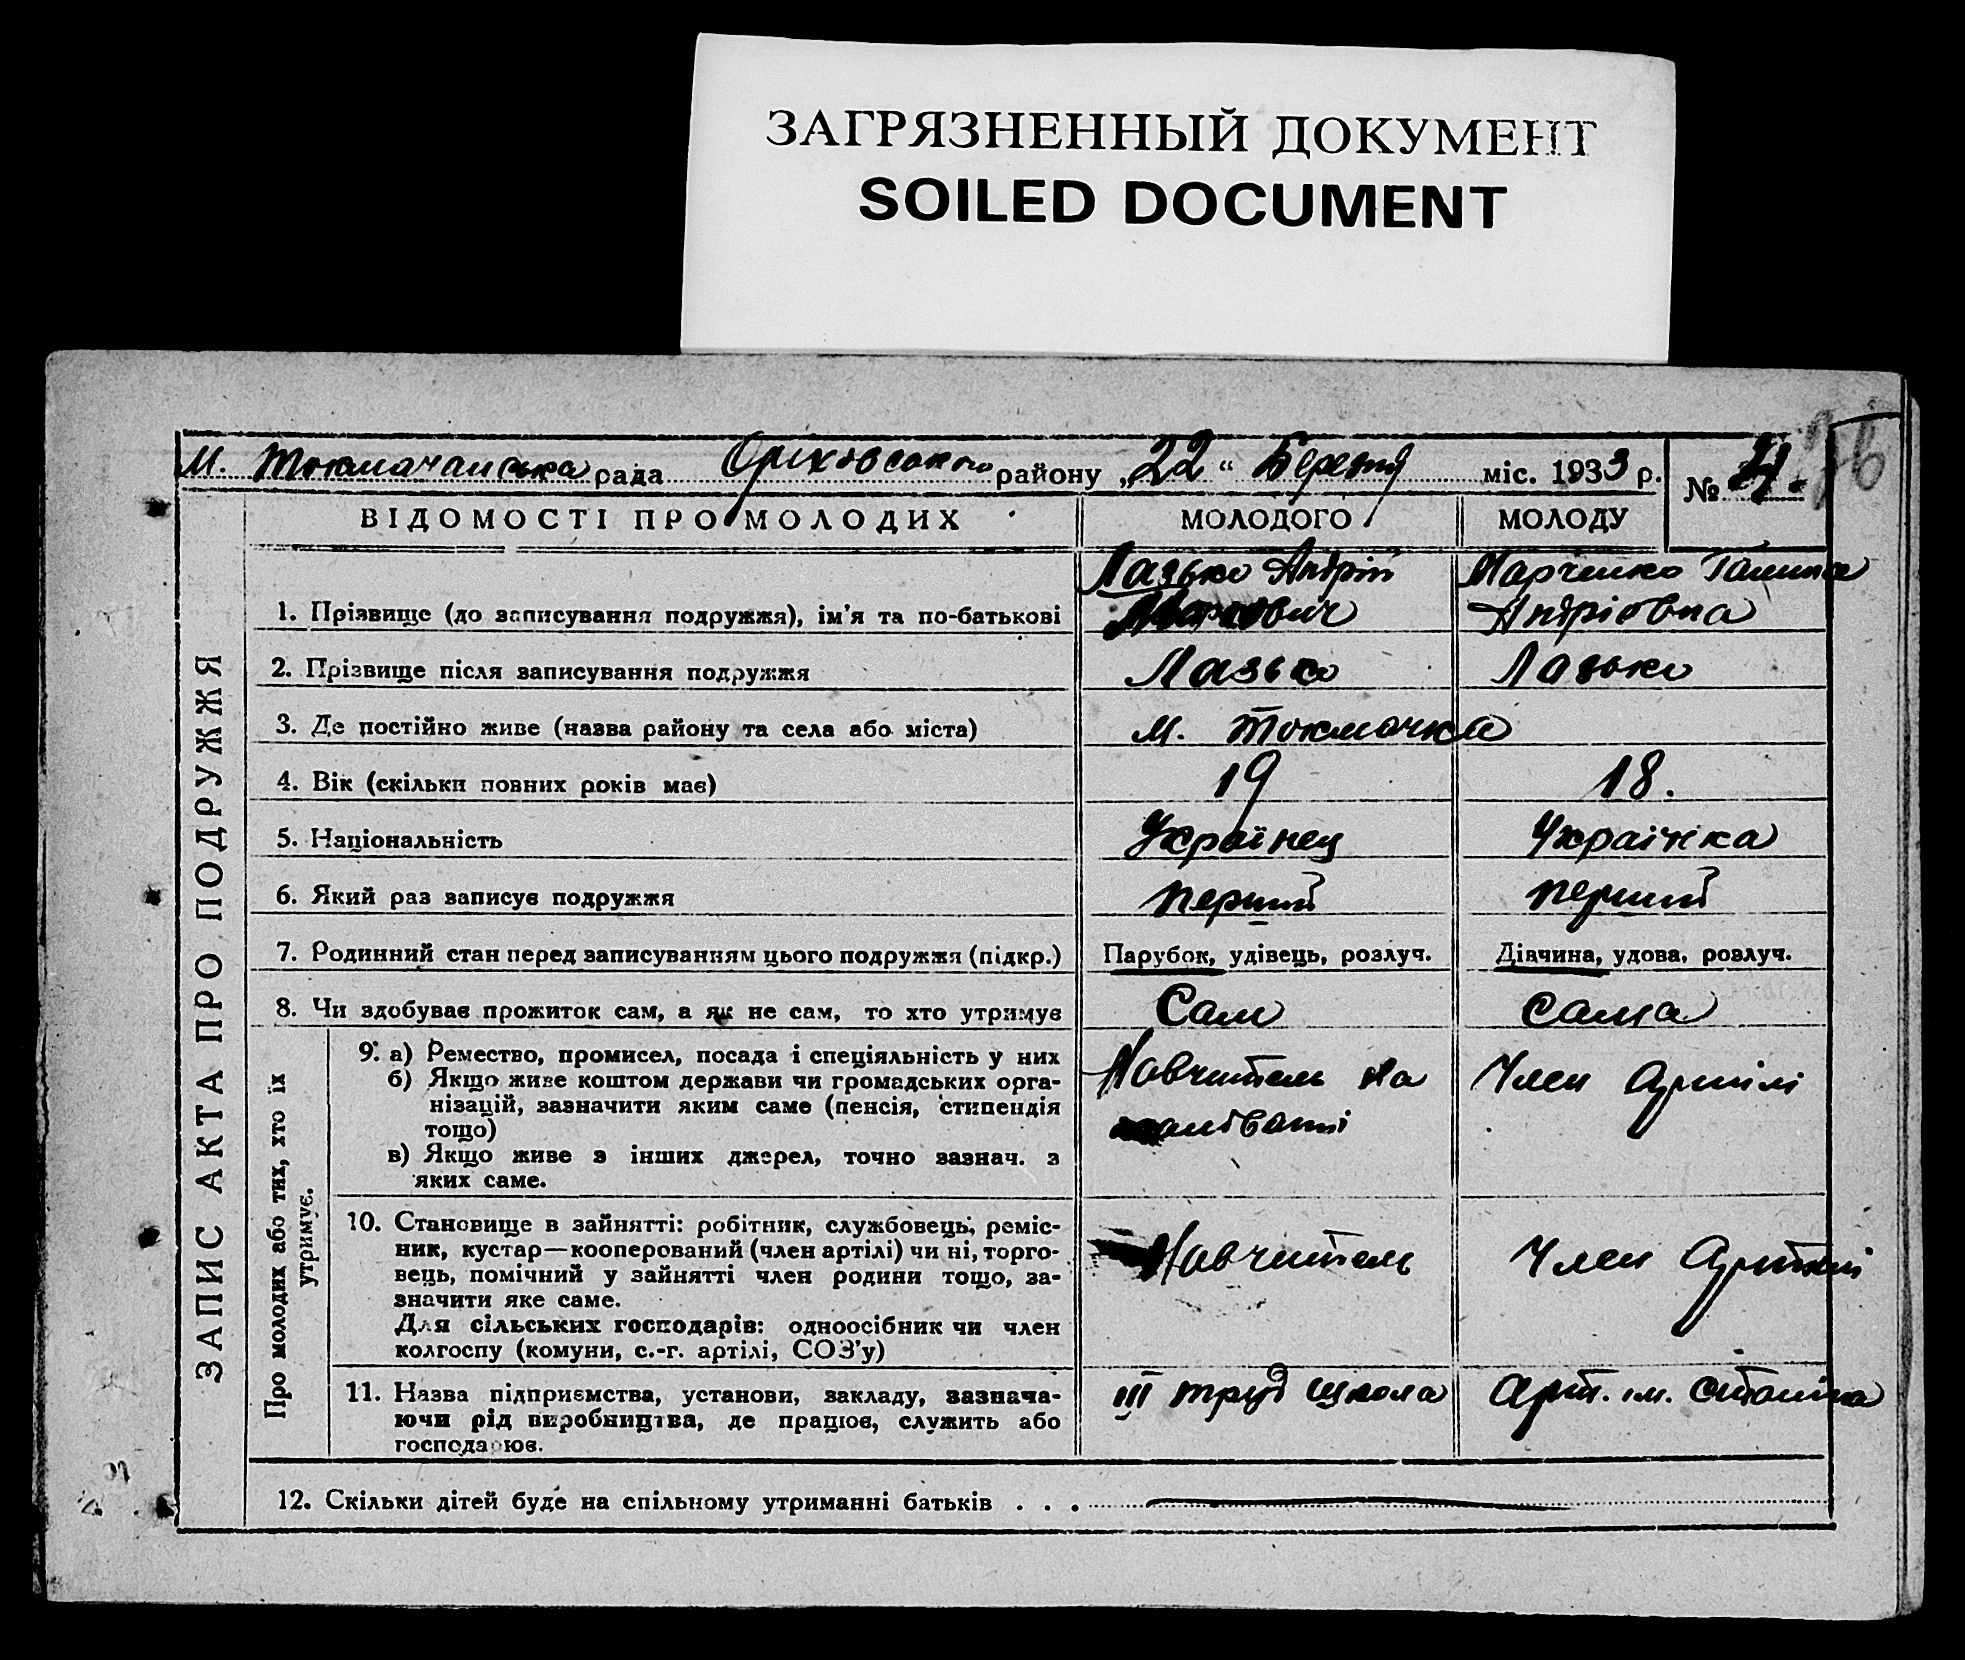 ЗАГРЯЗНЕННЫЙ ДОКУМЕНТ
SOILED DOCUMENT
М. Токмачанська рада Оріховського району „22“ Березня міс. 1933 р. №
ВІДОМОСТІ ПРО МОЛОДИХ МОЛОДОГО МОЛОДУ
Лазько Андрій Марченко Галина
1. Прізвище (до записування подружжя), ім'я та по-батькові Маркович Андріовна
2. Прізвище після записування подружжя Лазько Лазько
3. Де постійно живе (назва району та села або міста) М. Токмачка
4. Вік (скільки повних років має) 19 18.
5. Національність Українец Українка
6. Який раз записує подружжя перший перший
7. Родинний стан перед записуванням цього подружжя (підкр.) Парубок, удівець, розлуч. Дівчина, удова, розлуч.
8. Чи здобуває прожиток сам, а як не сам, то хто утримує Сам Сама
9. а) Ремество, промисел, посада і спеціяльність у них Навчитель на Член Артілі
б) Якщо живе коштом держави чи громадських орга-
нізацій, зазначити яким саме (пенсія, стипендія
тощо)
в) Якщо живе з інших джерел, точно зазнач. з
яких саме.
10. Становище в зайнятті: робітник, службовець, реміс-
ник, кустар—кооперований (член артілі) чи ні, торго- Навчитель Член Артілі
вець, помічний у зайнятті член родини тощо, за-
значити яке саме.
Для сільських господарів: одноосібник чи член
колгоспу (комуни, с.-г. артілі, СОЗ'у)
11. Назва підприємства, установи, закладу, зазнача- III труд школа Арт. ім. Сталіна
ючи рід виробництва, де працює, служить або
господарює.
12. Скільки дітей буде на спільному утриманні батьків . . .
ЗАПИС АКТА ПРО ПОДРУЖЖЯ
Про молодих або тих, хто їх
утримує.